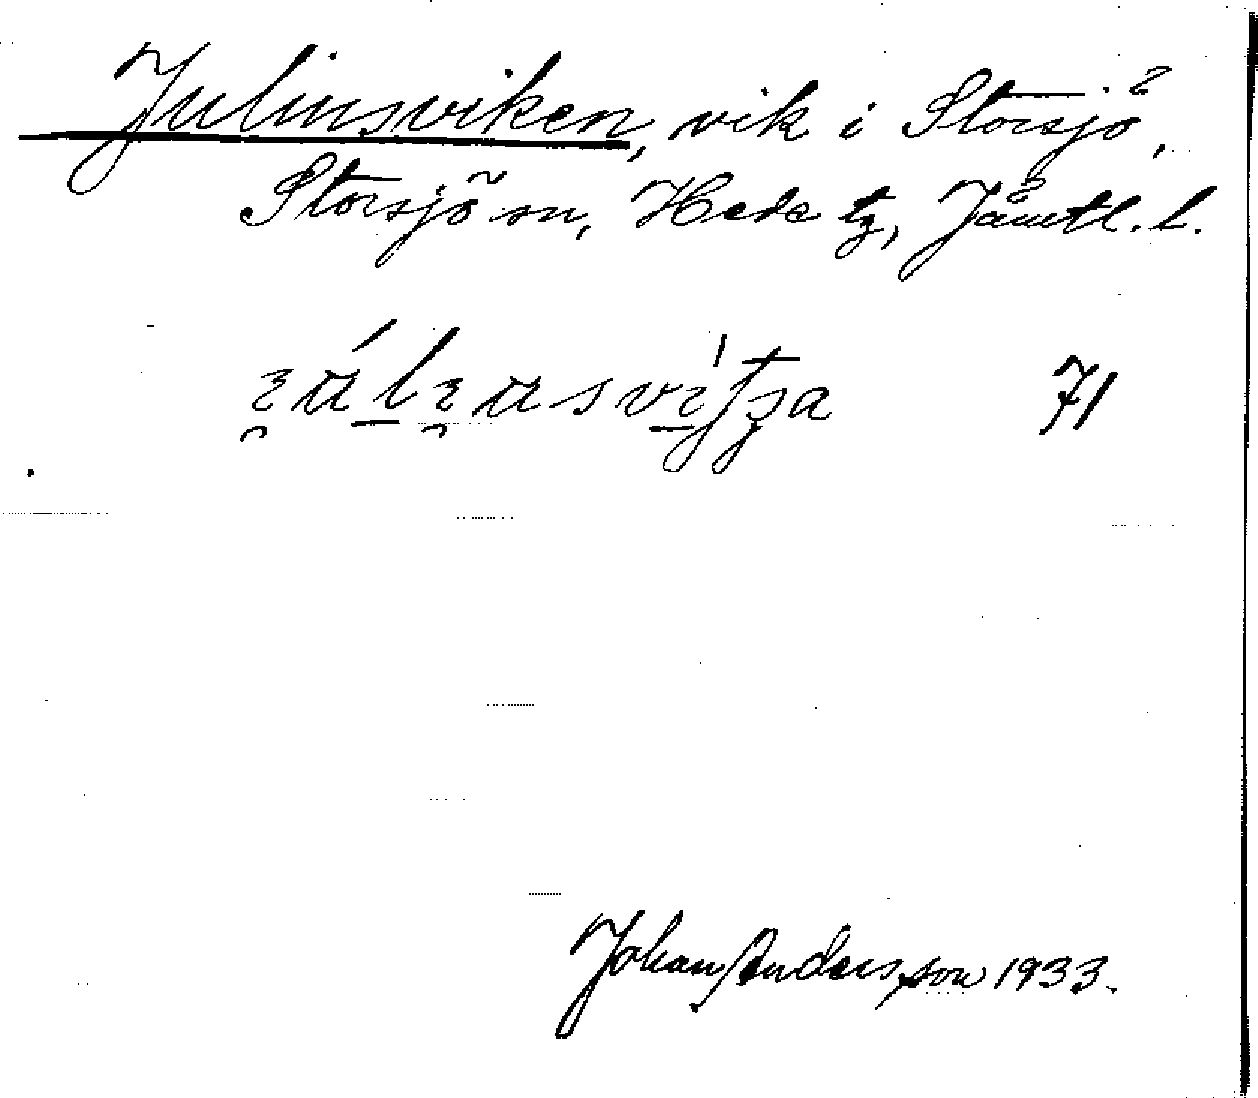 Juliusviken, vik i Storsjö,
Storsjö sn, Hede tg, Jämtl. l.
71
Johan Andersson 1933.